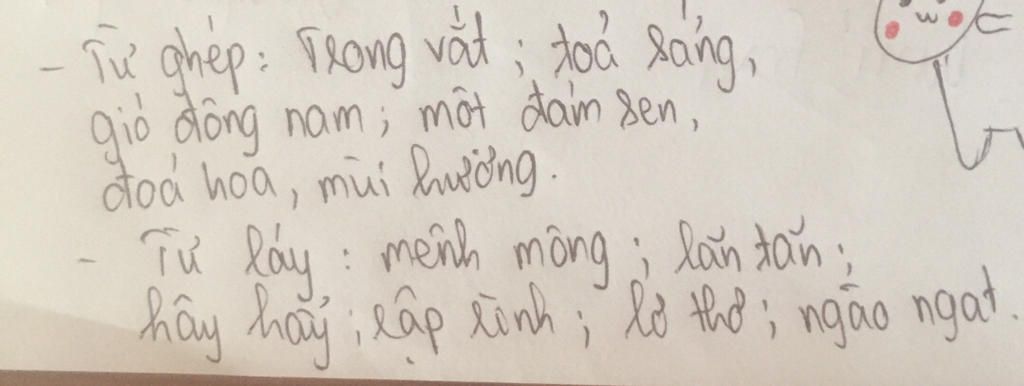 - Từ ghép: Trong vắt; toả sáng,
gió đông nam; một đám sen,
đoá hoa, mùi hương.
- Từ láy: mênh mông; lăn tăn;
hây hẩy; rập rình; lơ thơ; ngào ngạt.